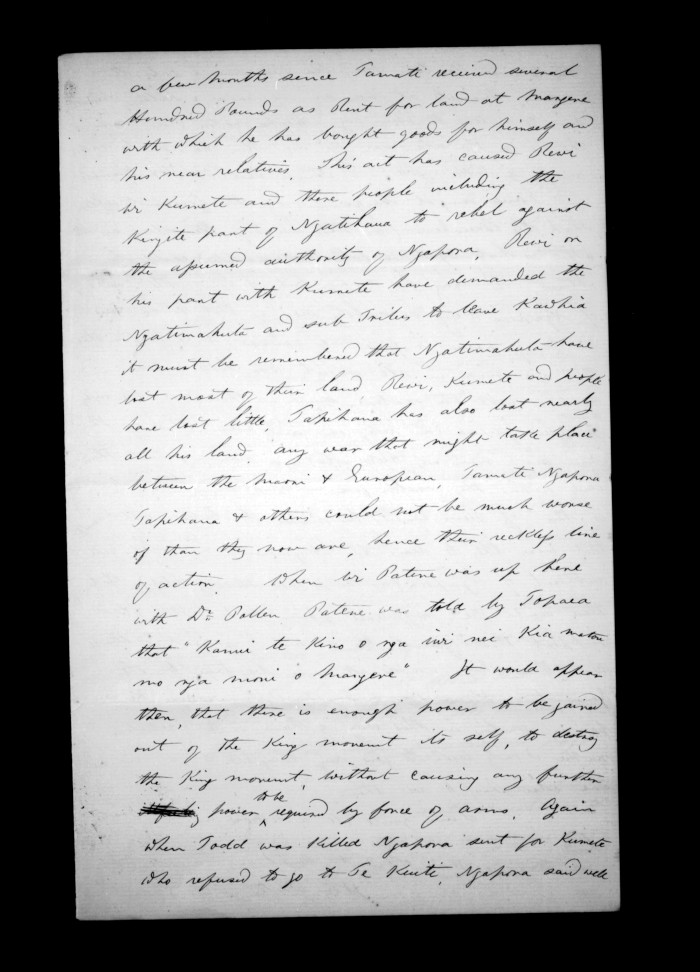 a few months since Tamati received several
Hundred Pounds as Rent for land at Mangere
with which he has bought goods for himself and
his near relatives. This act has caused Rewi
wi Kumete and those people including the
Kingite part of Ngatihaua to rebel against
the assumed authority of Ngapora. Rewi on
his part with Kumete have demanded the
Ngatimahuta and sub Tribes to leave Kawhia
it must be remembered that Ngatimahuta have
lost most of their land Rewi, Kumete and people
have lost little, Tapihana has also lost nearly
all his land any war that might take place
between the Maori & European, Tamati Ngapora
Tapihana & others could not be much worse
of than they now are, hence their reckless line
of action. When wi Patene was up here
with Dr Pollen Patene was told by Topaea
that "Kanui te Kino o nga iwi nei Kia matou
mo nga moni o Mangere" It would appear
then, that there is enough power to be gained
out of the King movemt its self, to destroy
the King movemt, without causing any further
power to be required by force of arms. Again
when Todd was Killed Ngapora sent for Kumete
who refused to go to Te Kuiti, Ngapora said well